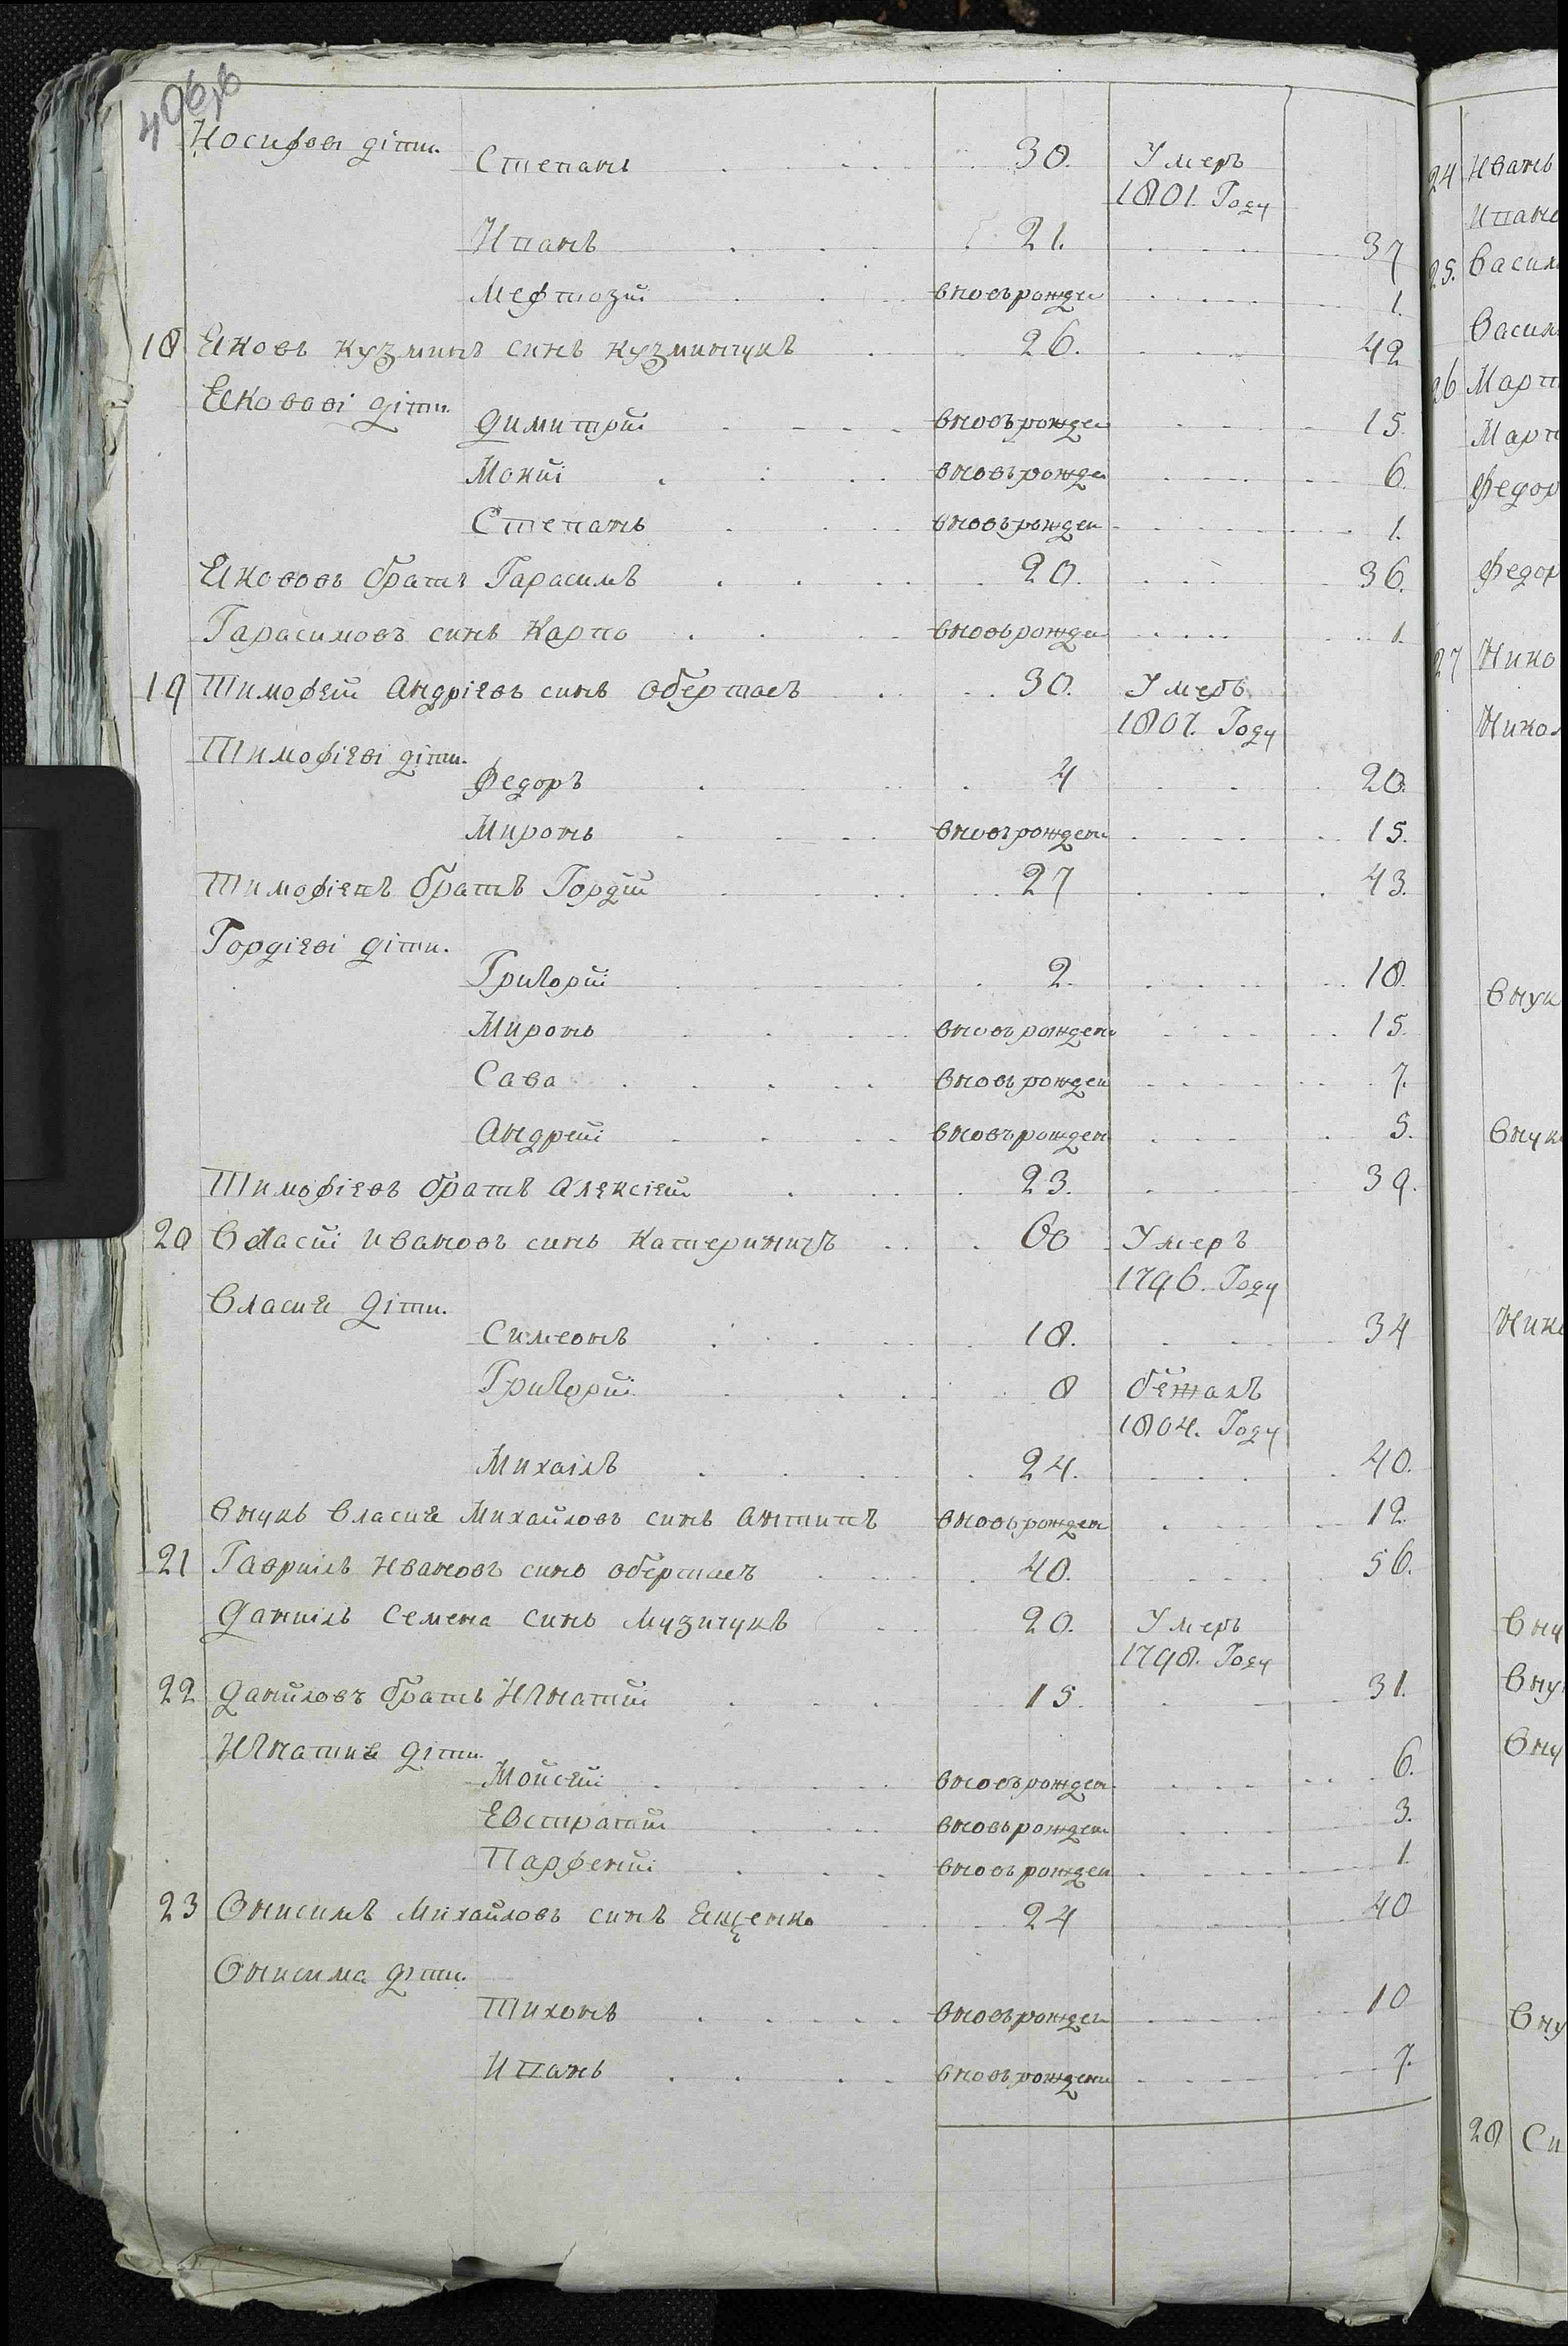 406,б
Иосифові діти.
Степанъ 30. Умеръ
1801. Году
Ипанъ 21. 37
Мефтозій вновърожден 1.
18 Яковъ кузминъ синъ кузминчукъ 26. 42
Яковові діти.
Димитрій вновърожден 15.
Мокій вновърожде 6.
Степанъ вновърожден 1.
Якововъ братъ Гарасимъ 20. 36.
Гарасимовъ синъ Карпо вновърожде 1.
19 Тимофей Андріевъ синъ обертасъ 30. Умеръ
1807. Году
Тимофіеві діти.
Федоръ 4 20.
Миронъ вновърожден 15.
Тимофіепъ братъ Гордій 27 43.
Гордіеві діти.
Григорій 2. 18.
Миронъ вновърожден 15.
Сава вновърожден 7.
Андрей вновърожден 5.
Тимофіевъ братъ Алексіей 23. 39.
20 Власій Ивановъ синъ Катериничъ 60 Умеръ
1796. Году
Власия діти.
Симеонъ 18. 34
Григорій 8 бежалъ
1804. Году
Михаілъ 24. 40.
Внукъ Власия Михайловъ синъ Антипъ вновърожден 12
21 Гавриілъ Ивановъ синъ обертасъ 40. 56.
Даниілъ Семена Синъ Музичукъ 20. Умеръ
1798. Году
22 Даниловъ братъ Игнатій 15. 31.
Игнатия діти.
Мойсей вновърожден 6.
Евстратій вновърожден 3.
Парфеній вновърожден 1
23 Онисимъ Михайловъ синъ Ященко 24 40
Онисима діти.
Тихонъ вновърожден 10
Ипанъ вновърождени 7.
24 Иванъ
Ипано
25. Васил
Васил
26 Март
Март
Федор
Федор
27 Нико
Никол
Внук
Внук
Ник
Вну
Вну
Вну
Вну
28 Си